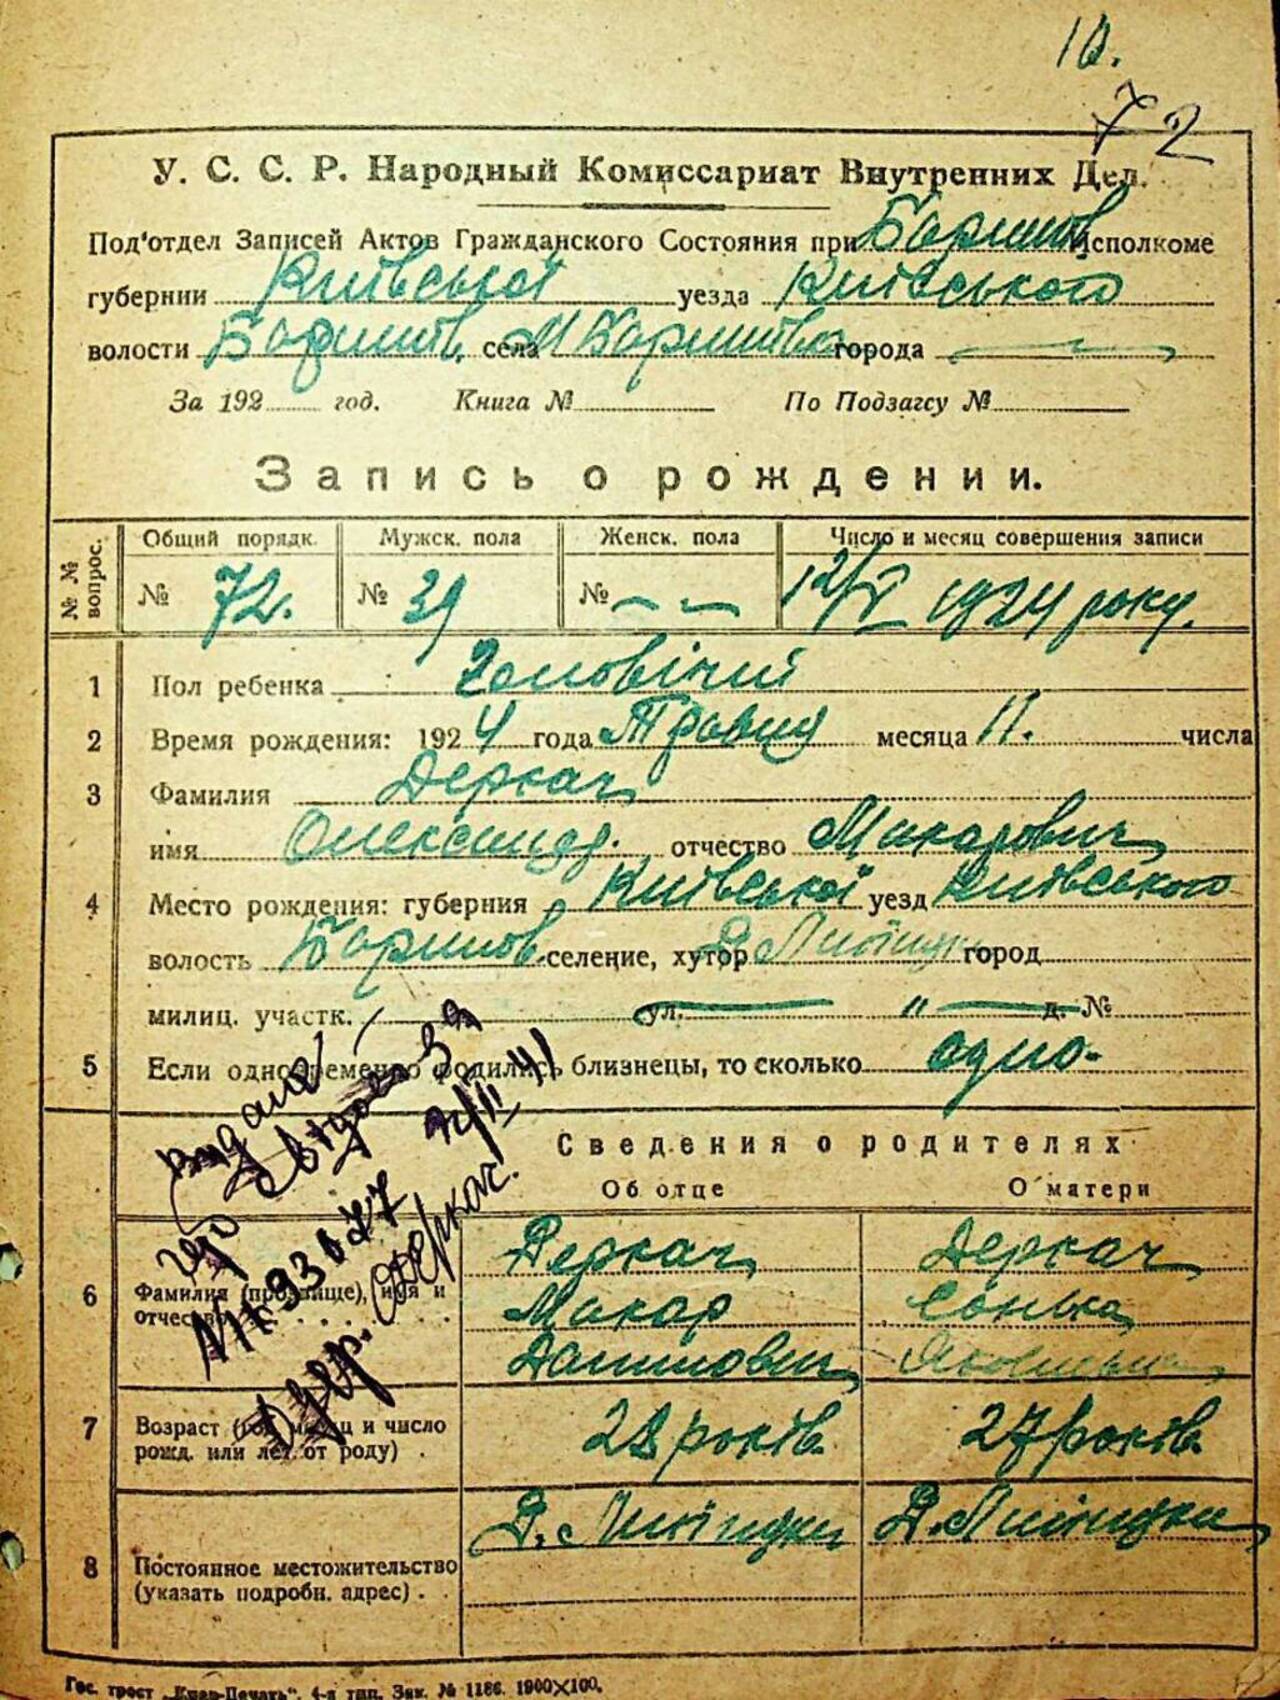 10.
72
У. С. С. Р. Народный Комиссариат Внутренних Дел.
Под'отдел Записей Актов Гражданского Состояния при Боришпов Исполкоме
губернии Київської уезда Київського
волости села города
За 192 год. Книга № По Подзагсу №
Запись о рождении.
№ № вопрос. Общий порядк. Мужск. пола Женск. пола Число и месяц совершения записи
№ 72. № 39 № — — 12/V 1924 року.
1 Пол ребенка Чоловічий
2 Время рождения: 1924 года Травня месяца 11. числа
3 Фамилия Деркач
имя Олександр. отчество Макарович
4 Место рождения: губерния Київської уезд Київського
волость селение, хутор город
милиц. участк. ул. — " — д. №
5 Если одновременно родились близнецы, то сколько одно.
Сведения о родителях
Об отце О матери
6 Фамилия (прозвище), имя и отчество Деркач Деркач
Макар Сонька
Данилович
7 Возраст (год, месяц и число рожд. или лет от роду) . 28 років 27 років
8 Постоянное местожительство (указать подробн. адрес) .
Видано
свідоц-ва
Деркач.
Гос. трест „Киев-Печать", 4-я тип. Зак. № 1186. 1900×100.